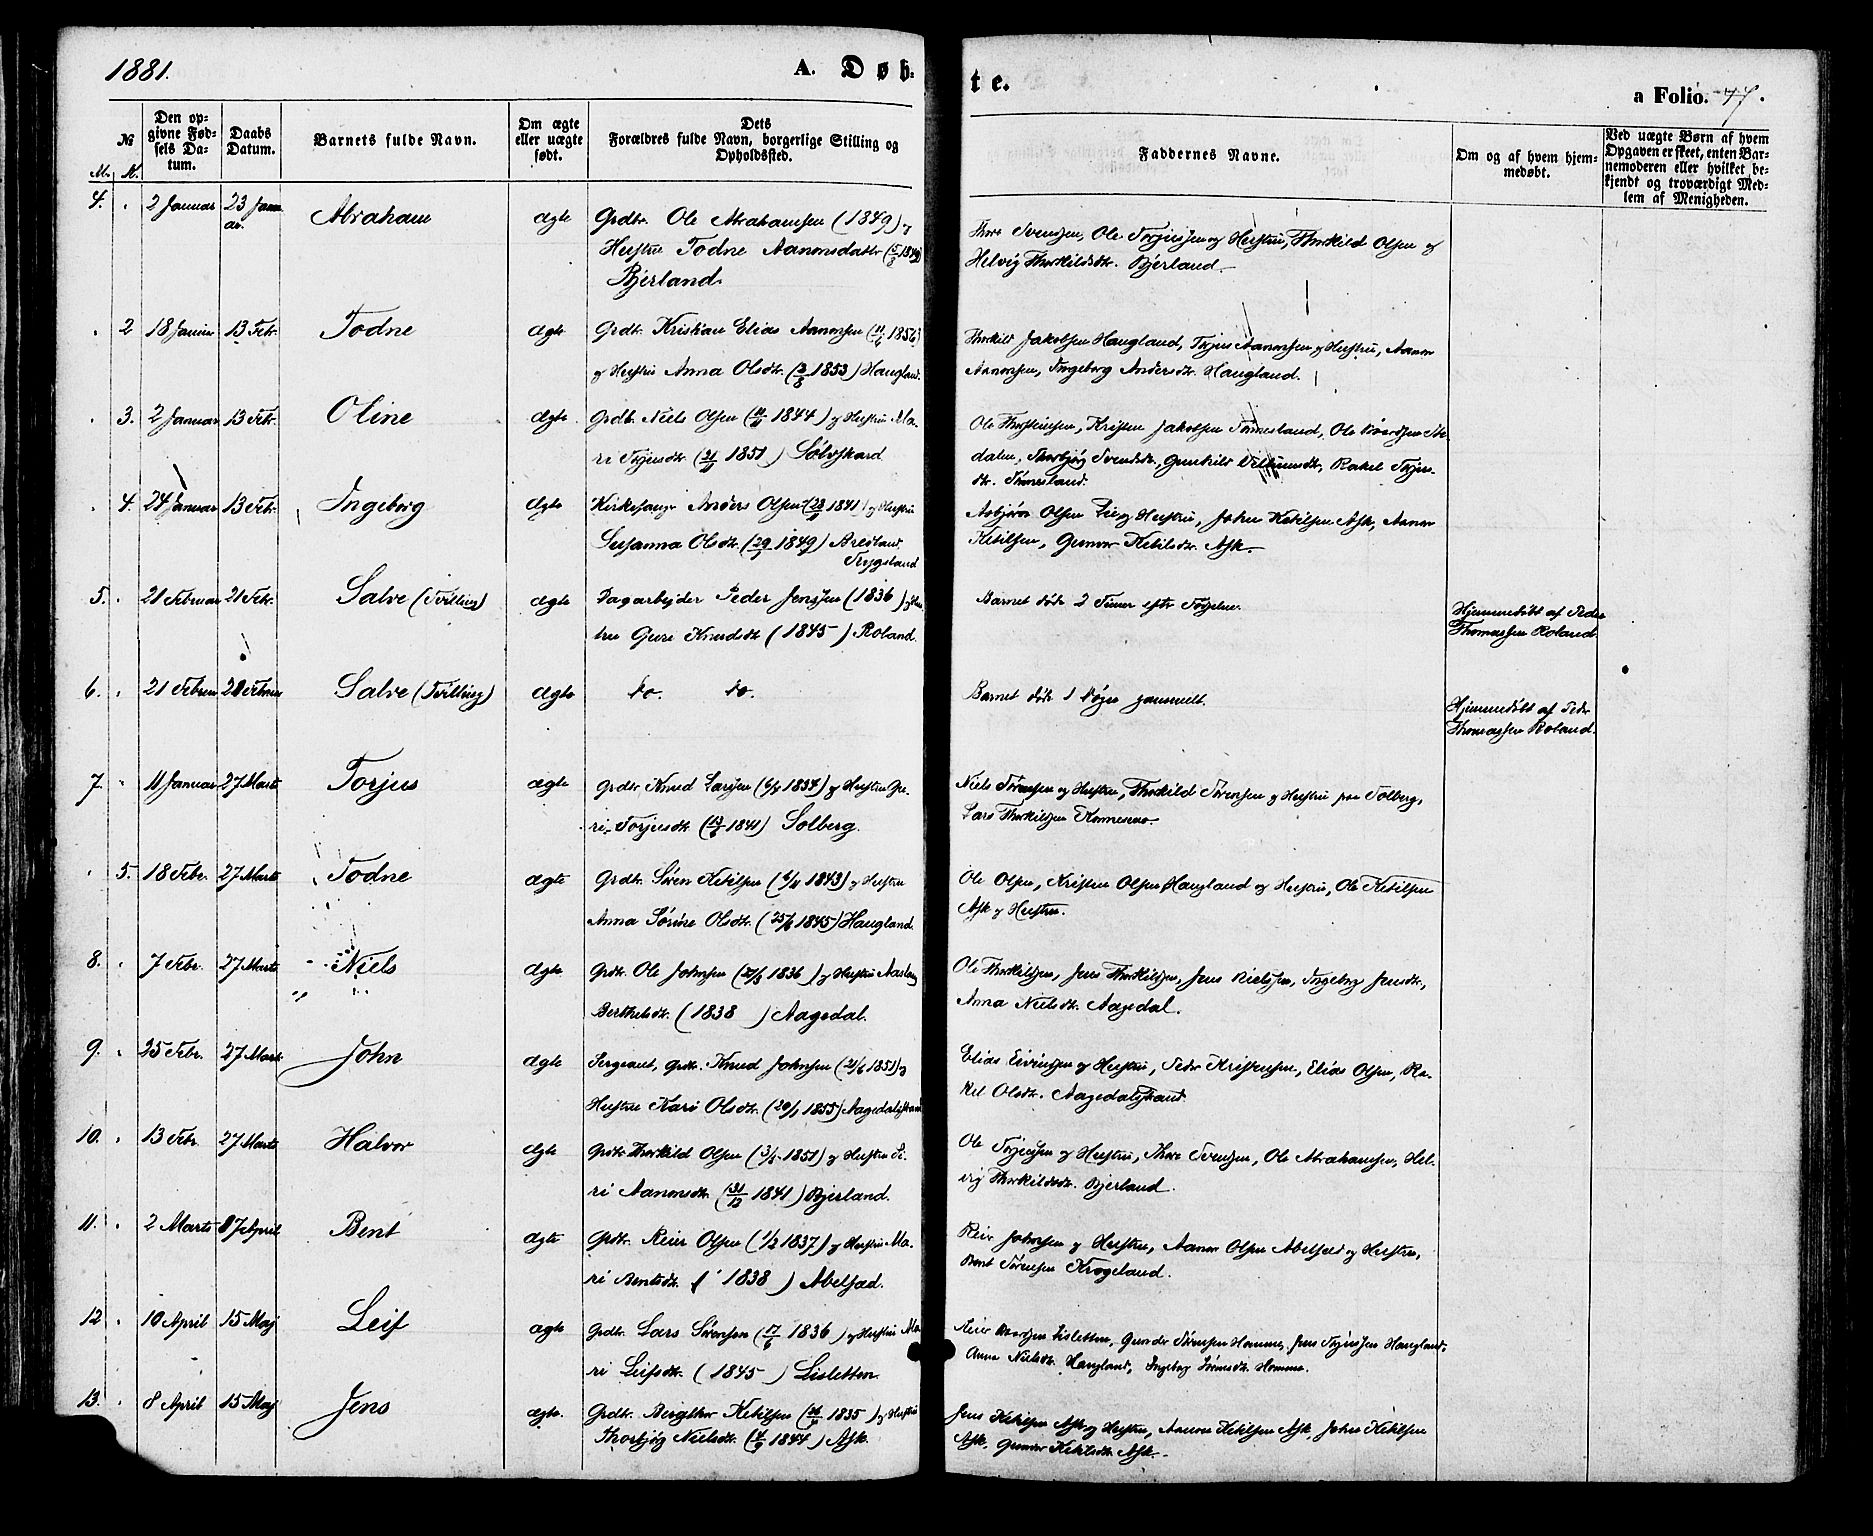 1881.
A. Døb-
te.
a Folio. 77.
№
M. K.
Den op-
givne Fød-
sels Da-
tum.
Daabs
Datum.
Barnets fulde Navn.
Om ægte
eller uægte
født.
Dets
Forældres fulde Navn, borgerlige Stilling og
Opholdssted.
Faddernes Navne.
Om og af hvem hjem-
medøbt.
Ved uægte Børn af hvem
Opgaven er skeet, enten Bar-
nemoderen eller hvilket be-
kjendt og troværdigt Med-
lem af Menigheden.
4. 2 Januar 23 Janu
ar. Abraham ægte Grdbr. Ole Abrahamsen (1849) og
Hustru Todne Aanonsdatter
Bjerland
Thore Svendsen, Ole Torjussen og Hustru, Thorkild Olsen og
Helvig Thorkildsdtr. Bjerland.
2 18 Januar 13 Febr. Todne ægte Grdbr. Kristian Elias Aanonsen (11/6 1856)
og Hustru Anna Olsdtr. 1853) Haugland.
Thorkild Jakobsen Haugland, Torjus Aanonsen og Hustru, Aanon
Aanonsen, Ingeborg Andersdtr. Haugland.
3. 2 Januar 13 Febr. Oline ægte Grdb. Niels Olsen 1844) og Hustru Ma-
ri Torjusdtr. 1851) Sølvskard
Ole Thorsteinsen, Kristen Jakobsen Tønnesland, Ole
dalen, Thorbjøg Svendsdtr., Gunhild Rakel Torjus-
dtr. Tønnesland.
4. 24 Januar 13 Febr. Ingeborg ægte Kirkesanger Anders Olsen 1841) og Hustru
Susanna Olsdtr. 1849)
Trygsland
Asbjørn Olsen Lie og Hustru, John Ketilsen Ask, Aanon
Ketilsen, Gunvor Ketilsdtr. Ask.
5. 21 Februar 21 Febr. Salve (Tvilling) ægte Dagarbejder Peder Jenssen (1836) og Hus
tru Guri Knudsdt. (1845) Roland.
Barnet døde 2 Timer efter Fødselen.
Hjemmedøbt af Peder
Thomassen Roland.
6. 21 Februar 21 Februar Salve (Tvilling) ægte do. do.
Barnet døde 1 Døgn gammelt.
Hjemmedøbt af Peder
Thomassen Roland.
7. 11 Januar 27 Marts Torjus ægte Grdbr. Knud Larsen 1834) og Hustru Gu-
ri Torjusdtr. 1841) Solberg.
Niels Sørensen og Hustru, Thorkild Sørensen og Hustru paa Solberg,
Lars Thorkildsen
5. 18 Febr. 27 Marts Todne ægte Grdbr. Søren Ketilsen 1843) og Hustru
Anna Sørine Olsdtr. 1845) Haugland.
Ole Olsen, Kristen Olsen Haugland og Hustru, Ole Ketilsen
Ask og Hustru.
8. 7 Febr. 27 Marts Niels ægte Grdbr. Ole Johnsen 1836) og Hustru Aaslaug
Berthelsdtr. (1838) Aagedal.
Ole Thorkildsen, Jens Thorkildsen, Jens Nielssen, Ingeborg Jensdtr.,
Anna Nielsdtr. Aagedal.
9. 25 Febr. 27 Marts John ægte Sergeant, Grdbr. Knud Johnsen (21/6 1851) og
Hustru Kari Olsdtr. 1855) Aagedalstrand
Elias Eivindsen og Hustru, Peder Kristensen, Elias Olsen, Ra-
kel Olsdtr. Aagedalstrand.
10. 13 Febr. 27 Marts Halvor ægte Grdbr. Thorkild Olsen 1851) og Hustru Si-
ri Aanonsdtr. (31/12 1841) Bjerland.
Ole Torjussen og Hustru, Thore Svendsen, Ole Abrahamsen, Hel-
vig Thorkildsdtr. Bjerland.
11. 2 Marts April Bent ægte Grdbr. Reier Olsen (1/2 1837) og Hustru Ma-
ri Bentsdtr. (1838) Abelsæd.
Reier Johnsen og Hustru, Aanon Olsen Abelsæd og Hustru,
Bent Sørensen Krogeland.
12 10 April 15 Maj Leif ægte Grdbr. Lars Sørensen (17/6 1836) og Hustru Ma-
ri Leifsdtr. (1845) Lisletten.
Reier Lisletten, Gunder Sørensen Homme, Jens Torjussen Haugland,
Anna Nielsdtr. Haugland, Ingeborg Homme.
13. 8 April 15 Maj Jens ægte. Grdbr. Bergthor Ketilsen 1835) og Hustru
Thorbjøg Nielsdtr. 1844) Ask.
Jens Ketilsen Ask og Hustru, Aanon Ketilsen Ask, John Ketilsen
Ask, Gunvor Ketilsdtr. Ask.